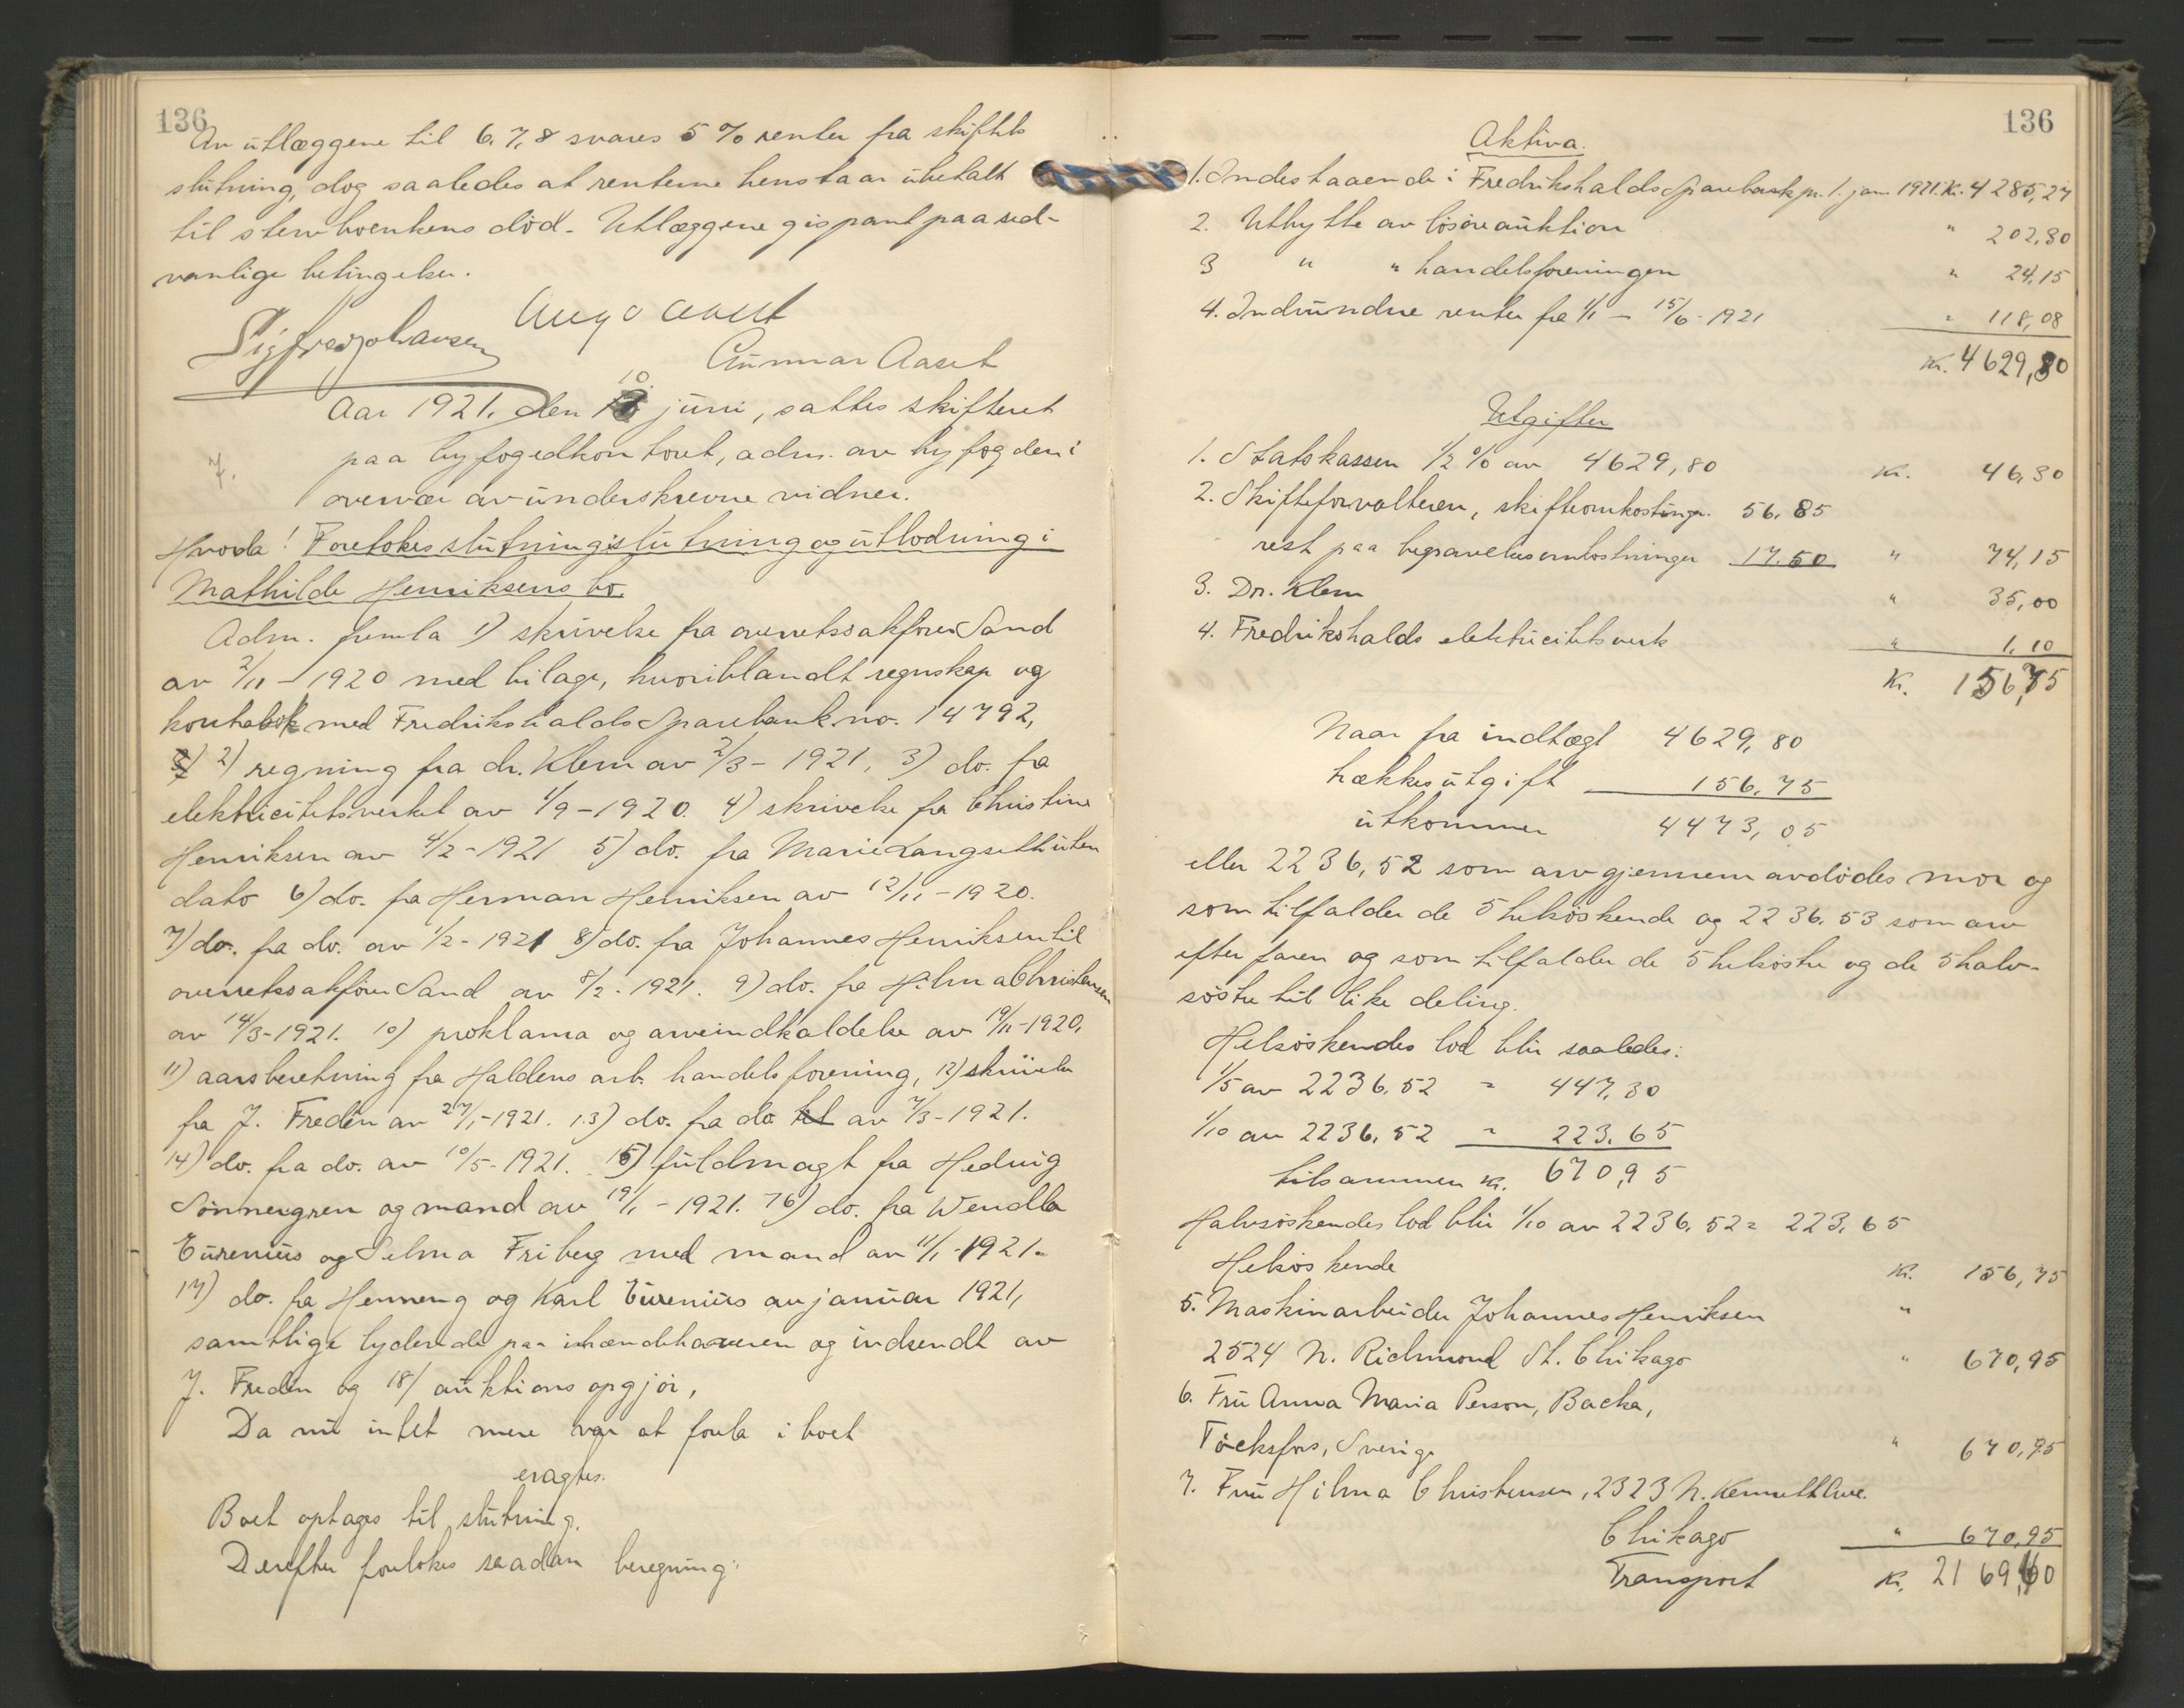 136
Av utlæggene til 6, 7, 8 svares 5 % renter fra skiftets
slutning, dog saaledes at renterne henstaar ubetalt
til stervboenkens død. Utlæggene gis pant paa sed-
vanlige betingelser.
Sigfred Johansen
Gunnar Aaset
Aar 1921. den 10. juni, sattes skifteret
paa byfogedkontoret, adm. av byfogden i
overvær av underskrevne vidner.
7.
Hvorda! Foretokes slutningslutning og utlodning i
Mathilde Henriksens bo.
Adm. fremla 1) skrivelse fra overretssakfører Sand
av 2/11 - 1920 med bilage, hvoriblandt regnskap og
kontrabok med Fredrikshalds Sparebank no. 14792,
2) regning fra dr. Klem av 2/3 - 1921, 3) do. fra
elektricitetsverket av 1/9 - 1920. 4) skrivelse fra Christine
Henriksen av 4/2 - 1921 5) do. fra Marie Langseth uten
dato 6) do. fra Herman Henriksen av 12/11 - 1920.
7) do. fra do. av 1/2 - 1921 8) do. fra Johannes Henriksen til
overretssakfører Sand av 8/2 - 1921. 9) do. fra Hilma Christensen
av 14/3 - 1921. 10) proklama og arveindkaldelse av 19/11 - 1920,
11) aarsberetning fra Haldens arb. handelsforening, 12) skrivelse
fra J. Freden av 27/1 - 1921. 13) do. fra do. av 7/3 - 1921.
14) do. fra do. av 10/5 - 1921. 15) fuldmagt fra Hedvig
Sönnergren og mand av 19/1 - 1921. 16) do. fra Wendla
Eurenius og Selma Friberg med mand av 11/1 - 1921.
17) do. fra Henneng og Karl Eurenius av januar 1921,
samtlige lydende paa ihændehaveren og indsendt av
J. Freden og 18/ auktionsopgjør,
Da nu intet mere var at forela i boet
eragtes.
Boet optages til slutning.
Derefter foretokes saadan beregning:
136
Aktiva.
1. Indestaaende i Fredrikshalds Sparebank pr. 1. jan 1921. Kr. 4285,27
2. Utbytte av løsøreauktion " 202,30
3 " " handelsforeningen " 24,15
4. Indvundne renter fra 1/1 - 15/6 - 1921 " 118,08
Kr. 4629,80
Utgifter
1. Statskassen 1/2 % av 4629,80 Kr. 46,30
2. Skifteforvalteren, skifteomkostninger. 56.85
rest paa begravelsesomkostninger 17.50 " 74,15
3. Dr. Klem " 35,00
4. Fredrikshalds elektricitetsverk " 1,10
Kr. 156,75
Naar fra indtægt 4629,80
trækkes utgift 156,75
utkommer 4473,05
eller 2236,52 som arv gjennem avdødes mor og
som tilfalder de 5 helsøskende og 2236.53 som arv
efter faren og som tilfalder de 5 helsøstre og de 5 halv-
søstre til like deling.
Helsøskendes lod blir saaledes:
1/5 av 2236.52 = 447,30
1/10 av 2236,52 = 223.65
tilsammen kr. 670,95
Halvsøskendes lod blir 1/10 av 2236.52 = 223,65
Helsøskende Kr. 156,75
5. Maskinarbeider Johannes Henriksen "
2524 N. Richmond St. Chikago " 670,95
6. Fru Anna Maria Person, Backa,
Töcksfors, Sverige " 670,95
7. Fru Hilma Christensen, 2323 N. Kenneth Ave.
Chikago " 670,95
Transport Kr. 2169,60